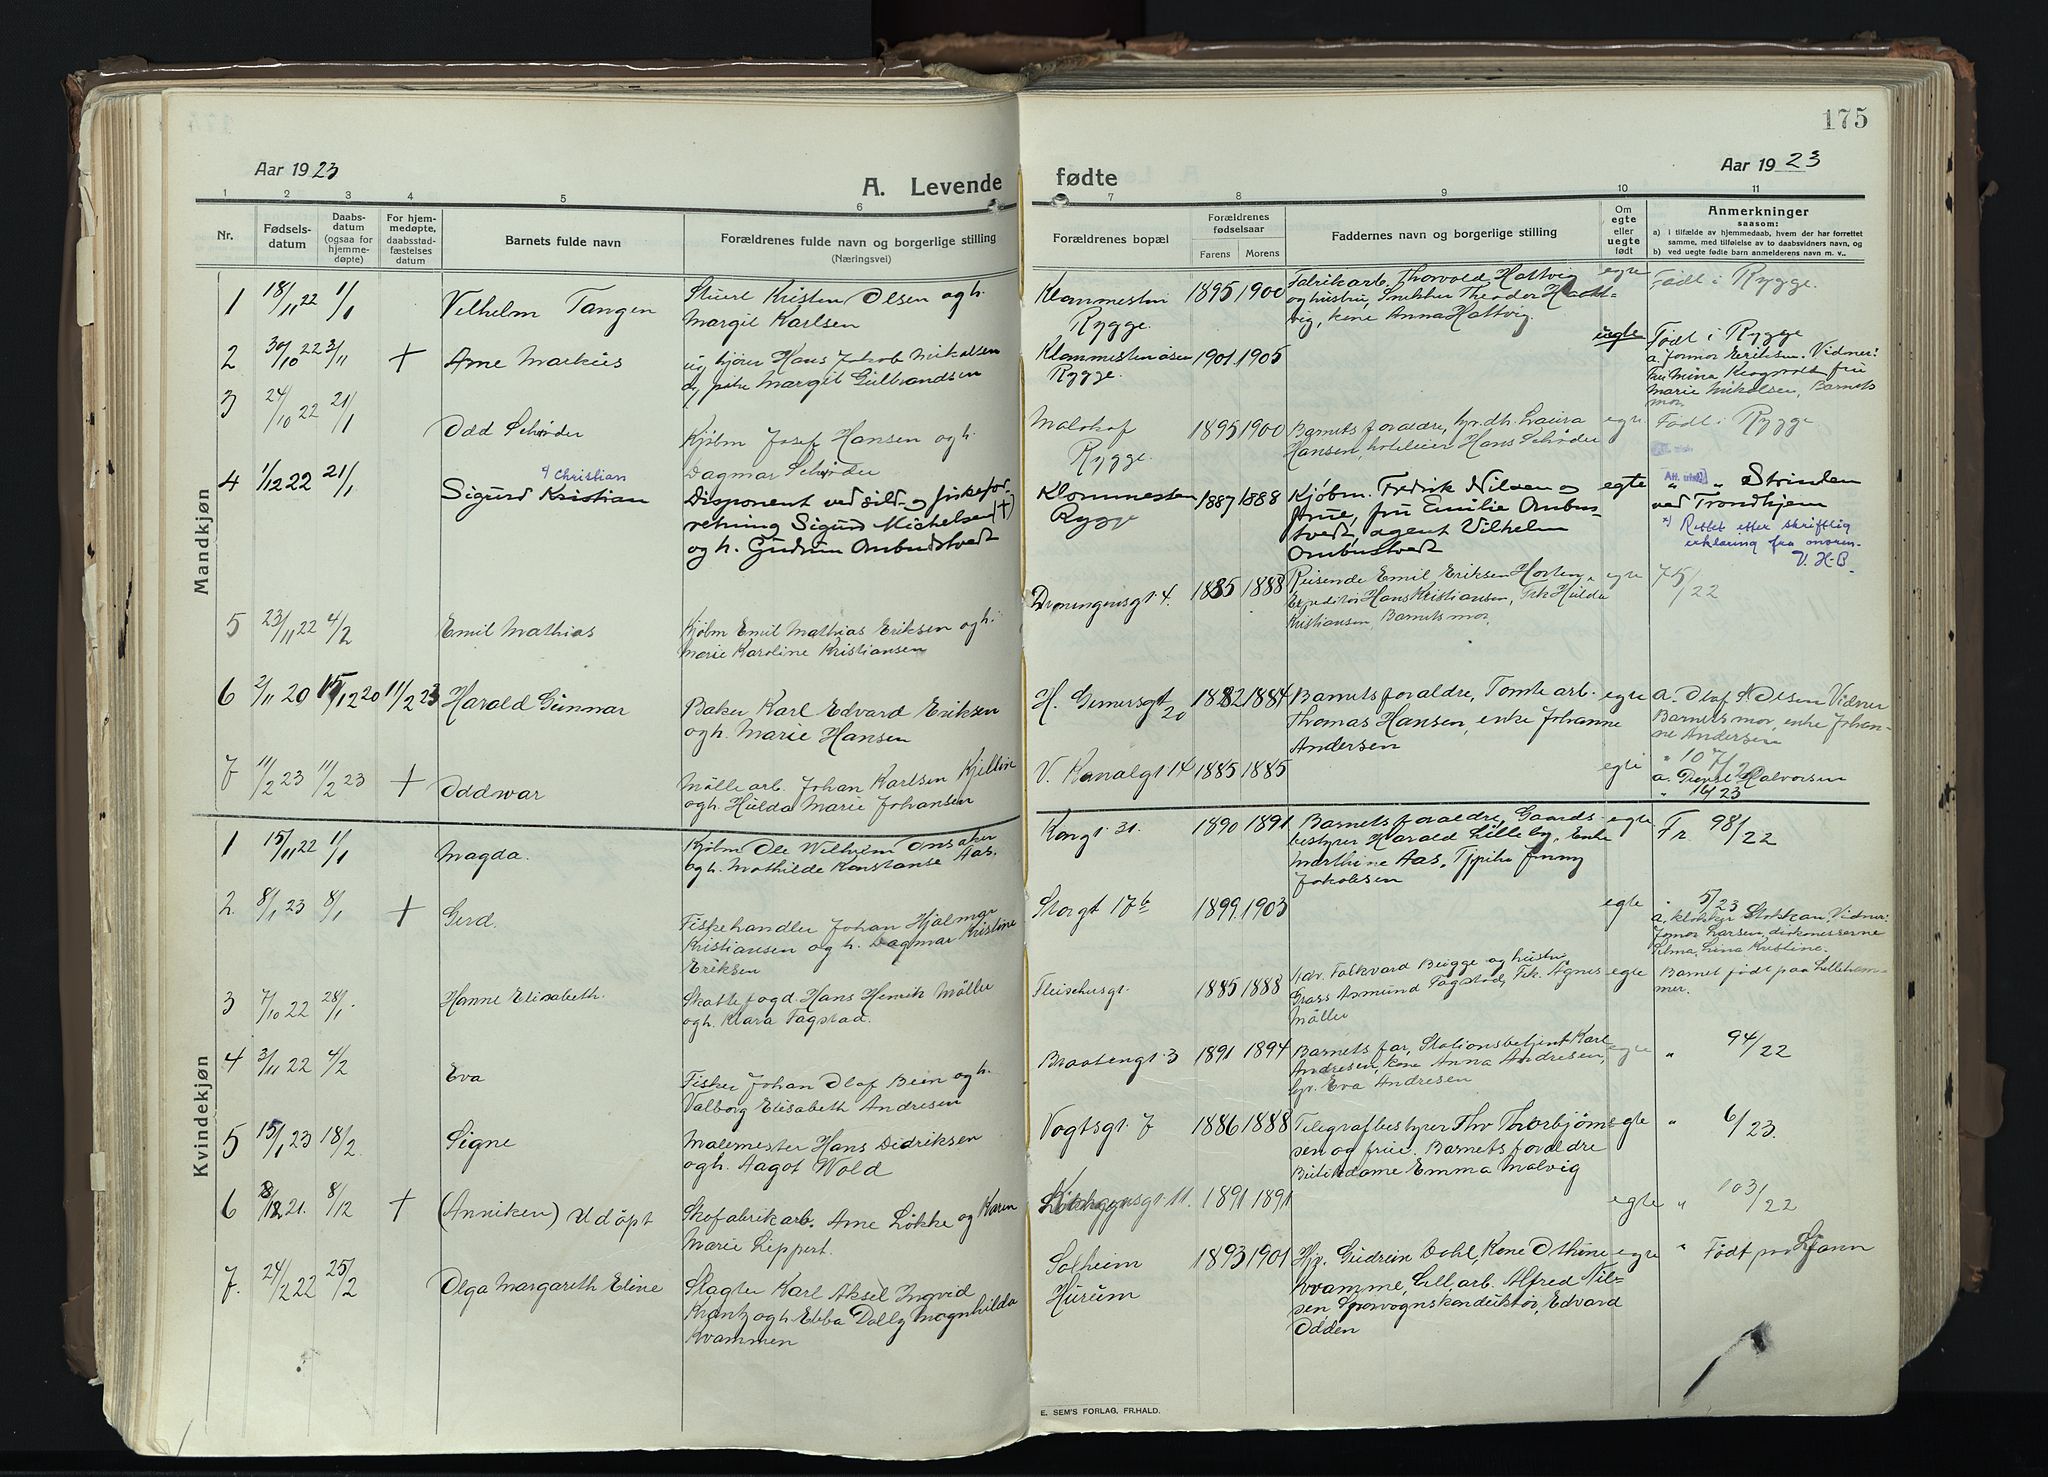 175
Aar 1923
A. Levende
fødte
Aar 1923
1 2 3 4 5 6 7 8 9 10 11
Nr.
Fødsels-
datum
Daabs-
datum
(ogsaa for
hjemme-
døpte)
For hjem-
medøpte,
daabsstad-
fæstelses
datum
Barnets fulde navn
Forældrenes fulde navn og borgerlige stilling
(Næringsvei)
Forældrenes bopæl
Forældrenes
fødselsaar
Farens Morens
Faddernes navn og borgerlige stilling
Om
egte
eller
uegte
født
Anmerkninger
saasom:
a) i tilfælde av hjemmedaab, hvem der har forrettet
samme, med tilføielse av to daabsvidners navn, og
b) ved uegte fødte barn anmelderens navn m. v..
Mandkjøn
1 18/11 22 1/1 Vilhelm Tangen
Stuert Kristen Olsen og h.
Margit Karlsen
Klommesten
Rygge.
1895 1900
Fabrikarb. Thorvald Hattvig
og hustru, Snekker Theodor Hatt-
vig, kone Anna Hattvig.
egte
Født i Rygge.
2 30/10 22 3/11 + Arne Markus
ug kjører Hans Jakob Nikolsen
og pike Margit Gulbrandsen
Klommestenåsen
Rygge.
1901. 1905
uegte
Født i Rygge
a. Jormor Eriksen. Vidner:
Marie Nikolsen, Barnets
mor.
3 24/10 22 21/1 Odd Schrøder
Kjøbm Josef Hansen og h.
Dagmar Schrøder
Malokof
Rygge.
1895 1900
Barnets foraldre, hr. dh. Laura
Hansen, hoteleier Hans Schrøder
egte
Født i Rygge
4 1/12 22 21/1 Sigurd Kristian
x) Christian
Disponent ved sild- og fiskefor-
retning Sigurd Michelsen (+)
og h. Gudrun Ombustvedt
Klommesten
Rygge
1887 1888
Kjøbm. Fredrik Nilsen og
frue, fru Emilie Ombu-
stvedt, agent Vilhelm
Ombustvedt
egte
Att. utst.
" " Strinden
ved Trondhjem
x) Rettet efter skriftlig
erklæring fra moren.
V. H-B.
5 23/11 22 4/2 Emil Mathias
Kjøbm Emil Mathias Eriksen og h.
Marie Karoline Kristiansen
Droningensgt 4.
1885 1888
Reisende Emil Eriksen Horten,
Expeditør Hans Kristiansen, Frk Hulda
Kristiansen, Barnets mor.
egte
75/22
6 2/11 20 15/12 20 11/2 23 Harald Gunnar
Baker Karl Edvard Eriksen
og h. Marie Hansen
H. Gernersgt
20
1882 1884
Barnets foraldre, Tomtearb.
Thomas Hansen, enke Johanne
Andersen
egte
a. Olaf A. Olsen Vidner
Barnets mor, enke Johan-
ne Andersen
" 107/20
7 11/2 23 11/2 23 + Oddvar
Møllearb. Johan Karlsen Kjellin
og h. Hulda Marie Johansen
V. Kanalgt. 14
1885 1885
egte
Halvorsen
" 16/23
Kvindekjøn
1 15/11 22 1/1 Magda.
Kjøbm Ole Wilhelm Onsaker
og h. Mathilde Konstanse Aas.
Kongt. 31.
1890 1891
Barnets foraldre, Gaards
bestyrer Harald Lilleby, Enke
Marthine Aas, Tj pike Jenny
Jakobsen
egte
Fr. 98/22
2. 8/1 23 8/1 + Gerd.
Fiskehandler Johan Hjalmar
Kristiansen og h. Dagmar Kristine
Eriksen
Storgt 17b
1899. 1903
egte
" 5/23
a. klokker Stokkan. Vidner:
Jomor Larsen, diakonisserne
Elma, Lina Kristine.
3 7/10 22 28/1 Hanne Elisabeth.
Skattefogd. Hans Henrik Møller
og h. Klara Fagstad.
Fleischersgt.
1885 1888
Adv. Folkvard Bugge og hustru
Grass. Asmund Fagstad, Frk. Agnes
Møller
egte
Barnet født paa Lilleham-
mer.
4 3/11 22 4/2 Eva
Fisker Johan Olaf Bein og h.
Valborg Elisabeth Andresen
Braatengt. 3
1891 1894
Barnets far, Stationsbetjent Karl
Andresen, kone Anna Andresen,
Syr. Eva Andresen
egte
" 94/22
5 15/1 23 18/2. Signe
Malermester Hans Didriksen
og h. Aagot Wold
Vogtsgt. 7
1886 1888
Telegrafbestyrer Thv Thorbjørn-
sen og frue. Barnets foraldre
Butikdame Emma Malvig
egte
" 6/23.
6 8/12 21. 8/12 + (Anniken) Udøpt
Skofabrikarb. Arne Løkke og Karen
Marie Lippert.
11.
1891 1891
egte
" 103/22
7. 24/2 22 25/2 Olga Margareth Eline
Slagter Karl Aksel Ingvid
Krantz og h. Ebba Dolly Magnhilda
Kvammen
Solheim
Hurum
1893 1901
Hjz. Gudrun Dahl, Kone Othine
Kvamme, Cell. arb. Alfred Nil-
sen, Sporvognskonduktør, Edvard
Odden
egte
" Født paa
E. SEM'S FORLAG. FR.HALD.